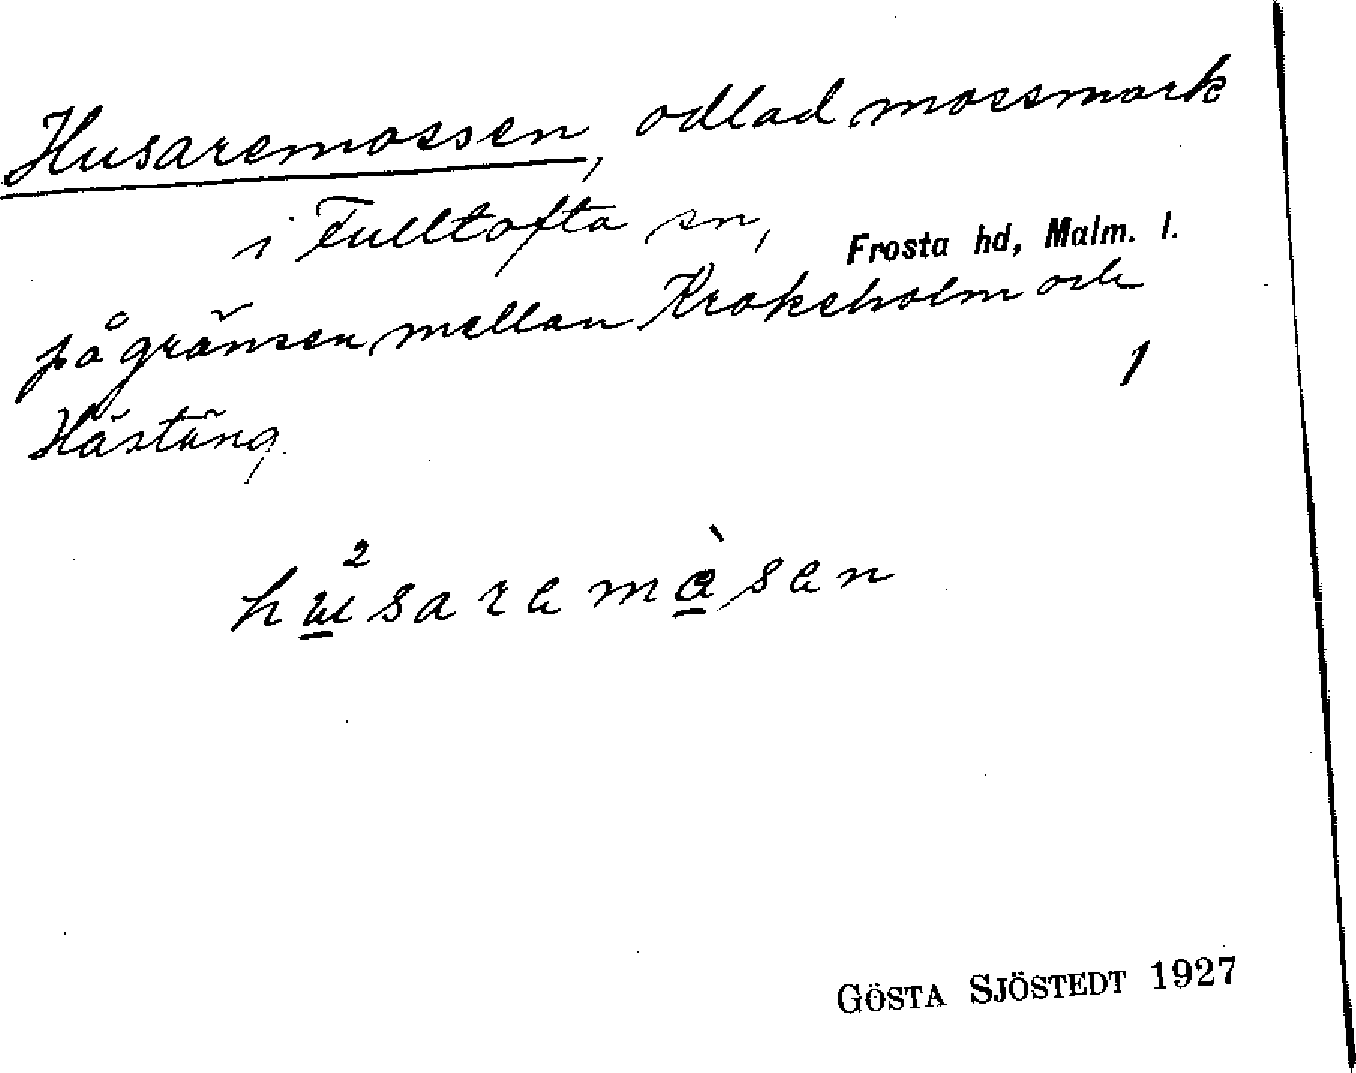 Husaremossen, odlad mossmark
i Fulltofta sn, Frosta hd, Malm. l.
på gränsen mellan Krokeholm och
1
Hästäng.
GÖSTA SJÖSTEDT 1927